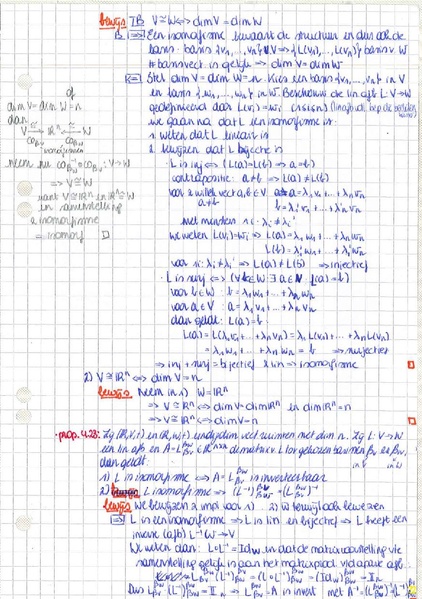 bewijs TB V≅W ⟺ dim V = dim W
B. ⟹ Een isomorfisme bewaart de structuur en dus ook de
basis. basis {v₁, ..., vₙ} v V ⟹ {L(v₁), ..., L(vₙ)} basis v W
# basisvect. is gelijk ⟹ dim V = dim W
⟸ Stel dim V = dim W = n. Kies een basis {v₁, ..., vₙ} in V
en basis {w₁, ..., wₙ} in W. Beschouw de lin afb L: V→W
gedefinieerd door L(vᵢ) = wᵢ (1≤i≤n)
we gaan na dat L een isomorfisme is:
1. weten dat L lineair is
2. bewijzen dat L bijectie is
• L is inj ⟺ (L(a) = L(b) ⟹ a = b)
contrapositie: a ≠ b ⟹ L(a) ≠ L(b)
voor 2 willek vect a, b ∈ V: a = λ₁v₁ + ... + λₙvₙ
a ≠ b b = λ₁'v₁ + ... + λₙ'vₙ
met minstens 1 i: λᵢ ≠ λᵢ'
we weten L(vᵢ) = wᵢ ⟹ L(a) = λ₁w₁ + ... + λₙwₙ
L(b) = λ₁'w₁ + ... + λₙ'wₙ
voor 1 i: λᵢ ≠ λᵢ' ⟹ L(a) ≠ L(b) ⟹ injectief
• L is surj ⟺ (∀b∈W: ∃a∈V: L(a) = b)
voor b∈W: b = λ₁w₁ + ... + λₙwₙ
voor a∈V: a = λ₁v₁ + ... + λₙvₙ
dan geldt: L(a) = b:
L(a) = L(λ₁v₁ + ... + λₙvₙ) = λ₁L(v₁) + ... + λₙL(vₙ)
= λ₁w₁ + ... + λₙwₙ = b ⟹ surjectief
⟹ inj + surj = bijectief & lin ⟹ isomorfisme □
of
dim V = dim W = n
dan
V ≅ ℝⁿ ≅ W
isomorfismen
neem nu co⁻¹ ∘ co : V→W
⟹ V≅W
want V≅ℝⁿ en ℝⁿ≅W
en samenstelling
2 isomorfisme
= isomorf □
2) V ≅ ℝⁿ ⟺ dim V = n
bewijs Neem in 1) W = ℝⁿ
⟹ V≅ℝⁿ ⟺ dim V = dim ℝⁿ en dim ℝⁿ = n
⟹ V≅ℝⁿ ⟺ dim V = n □
• prop. 4.28: Zij (ℝ,V,+) en (ℝ,W,+) eindigdim vect. ruimten met dim n. Zij L: V→W
een lin afb en A = L ∈ ℝⁿˣⁿ de matrix v L tov gekozen basissen βv en βw,
dan geldt:
1) L is isomorfisme ⟺ A = L is inverteerbaar
2) L isomorfisme ⟹ (L⁻¹) = (L)⁻¹
bewijs We bewijzen 2 impl voor 1). 2) w bewijl ook bewezen
⟹ L is een isomorfisme ⟹ L is lin en bijectief ⟹ L heeft een
inverse (afb) L⁻¹: W→V
We weten dan: L∘L⁻¹ = Id en dat de matrixvoorstelling vie
samenstelling gelijk is aan het matrixprod.
L (L⁻¹) = (L∘L⁻¹) = (Id) = 𝕀ₙ
Dus L (L⁻¹) = 𝕀ₙ ⟹ L = A is invert met A⁻¹ = (L⁻¹)